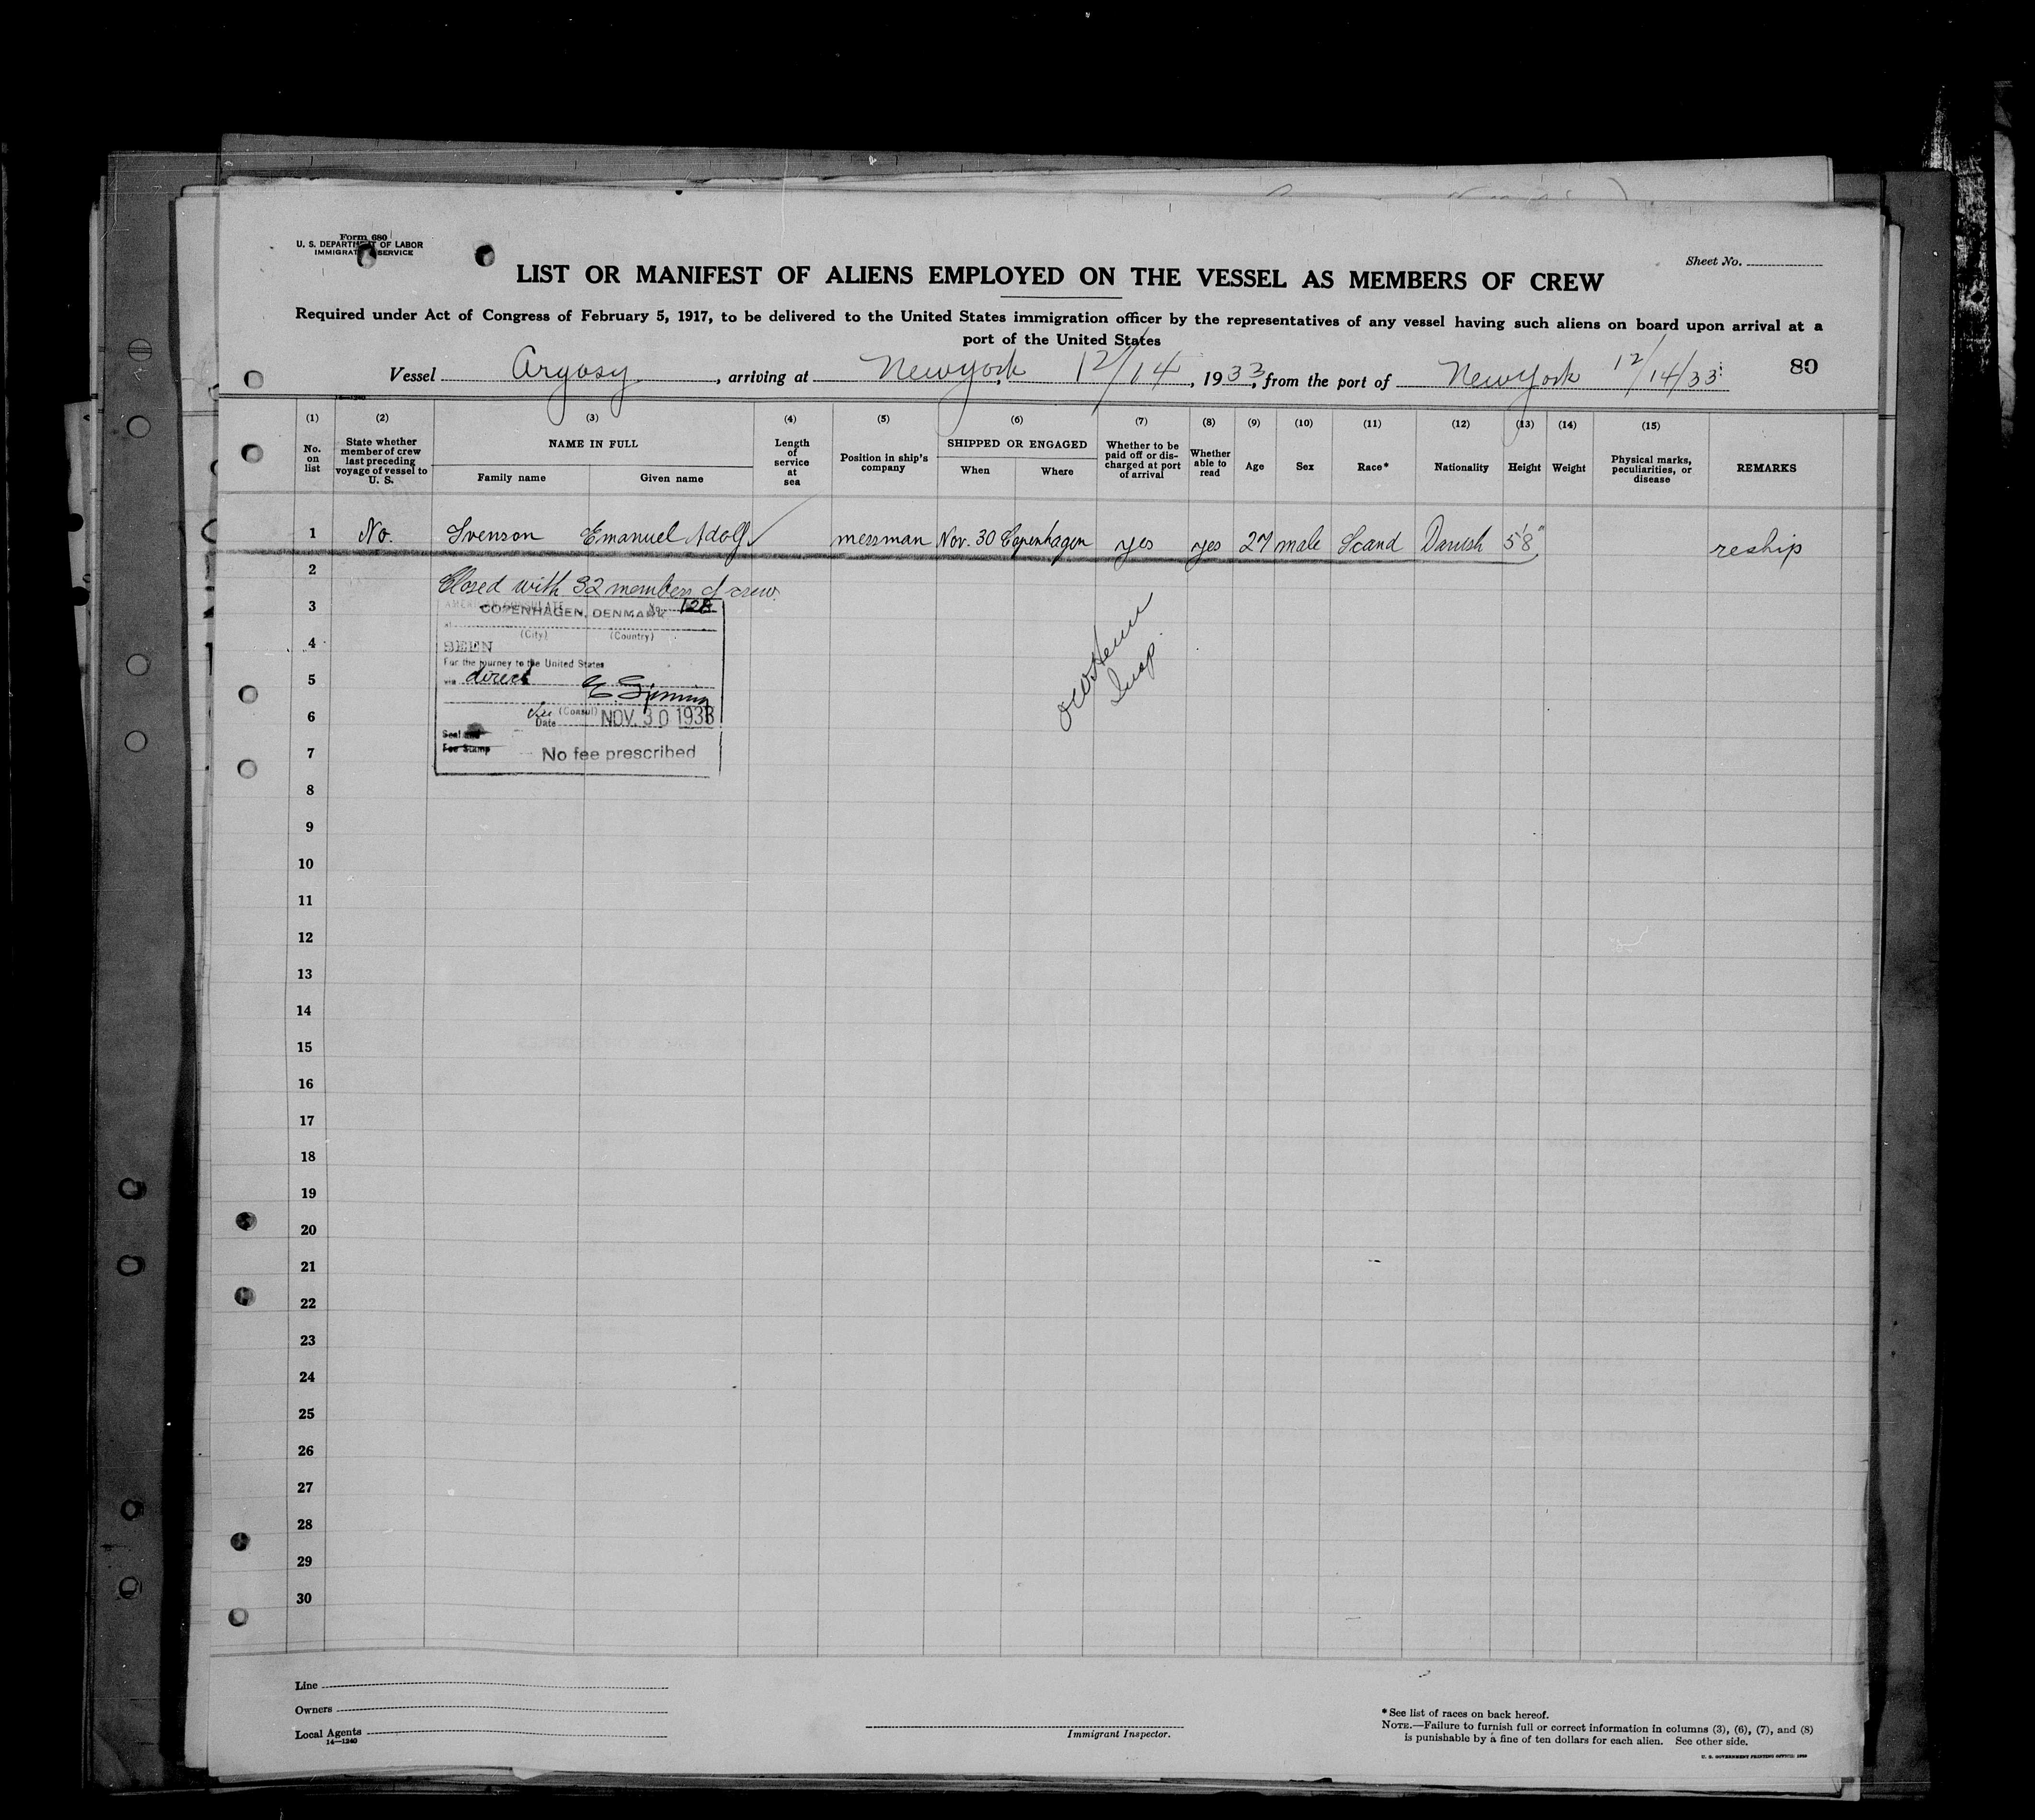 Form 680
U. S. DEPARTMENT OF LABOR
IMMIGRATION SERVICE
Sheet No.
LIST OR MANIFEST OF ALIENS EMPLOYED ON THE VESSEL AS MEMBERS OF CREW
Required under Act of Congress of February 5, 1917, to be delivered to the United States immigration officer by the representatives of any vessel having such aliens on board upon arrival at a
port of the United States
80
Vessel Argosy, arriving at New York 12/14, 1933, from the port of New York 12/14/33
(1) (2) (3) (4) (5) (6) (7) (8) (9) (10) (11) (12) (13) (14) (15)
No. on list
State whether member of crew last preceding voyage of vessel to U. S.
NAME IN FULL
Family name Given name
Length of service at sea
Position in ship's company
SHIPPED OR ENGAGED
When Where
Whether to be paid off or discharged at port of arrival
Whether able to read
Age
Sex
Race*
Nationality
Height
Weight
Physical marks, peculiarities, or disease
REMARKS
1 No. Svenson Emanuel Adolf messman Nov. 30 Copenhagen yes yes 27 male Scand Danish 5'8" reship
2
Closed with 32 members of crew
3
AMERICAN CONSULATE No. 128
at COPENHAGEN, DENMARK
(City) (Country)
4
SEEN
For the journey to the United States
5
via direct
6
(Consul)
Date NOV. 30 1933
Seal and
Fee Stamp
7
No fee prescribed
Insp.
8
9
10
11
12
13
14
15
16
17
18
19
20
21
22
23
24
25
26
27
28
29
30
Line
Owners
Local Agents
14—1240
Immigrant Inspector.
*See list of races on back hereof.
NOTE.—Failure to furnish full or correct information in columns (3), (6), (7), and (8)
is punishable by a fine of ten dollars for each alien. See other side.
U. S. GOVERNMENT PRINTING OFFICE: